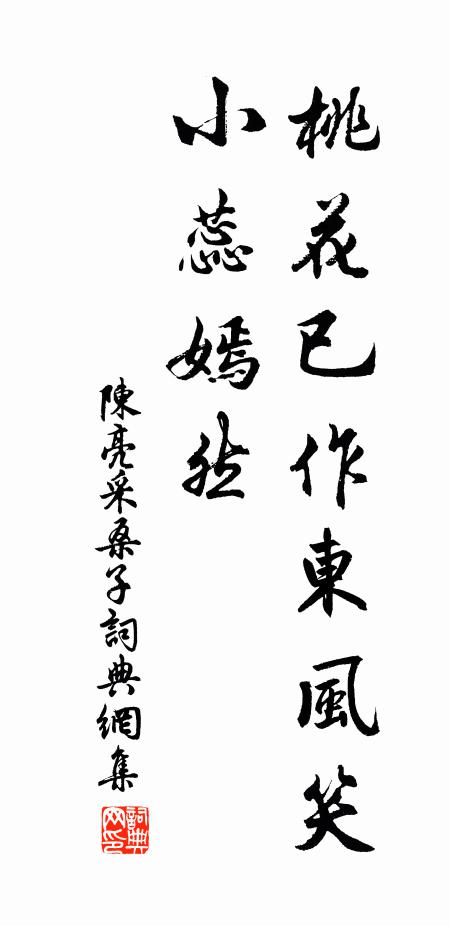 桃花已作東風笑
小蕊嫣然
陳亮采桑子詞典網集
詞典网印